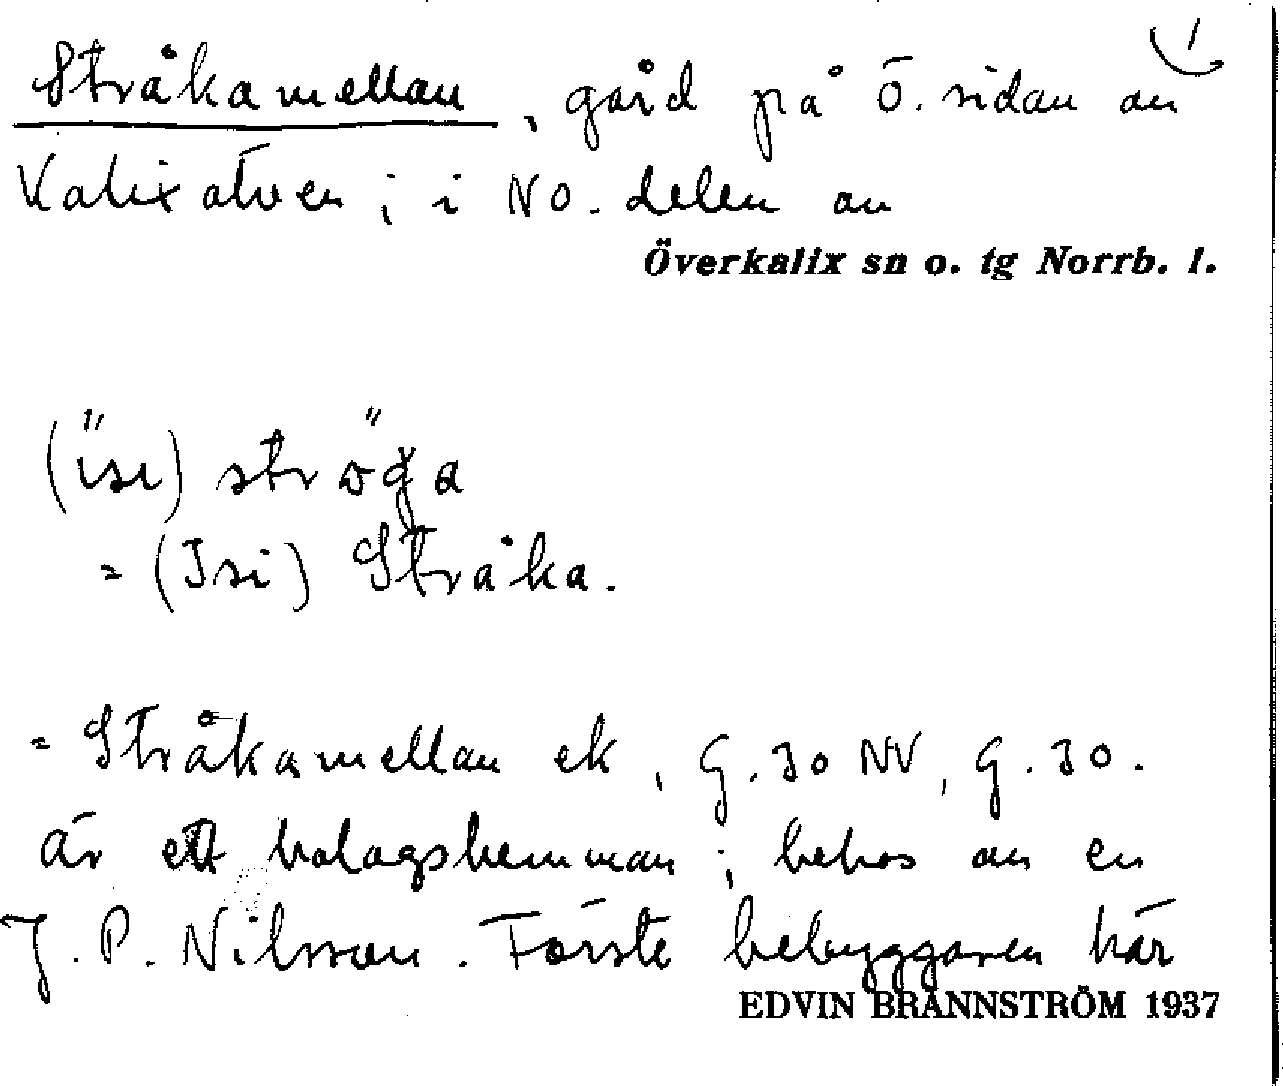 1
Stråkamellan, gård på ö. sidan av
Kalixälven; i NO. delen av
Överkalix sn o. tg Norrb. l.
(isi) ströga
= (Isi) Stråka.
= Stråkamellan ek, G. 30 NV, G. 30.
är ett bolagshemman; bebos av en
J. P. Nilsson. Förste bebyggaren här
EDVIN BRÄNNSTRÖM 1937